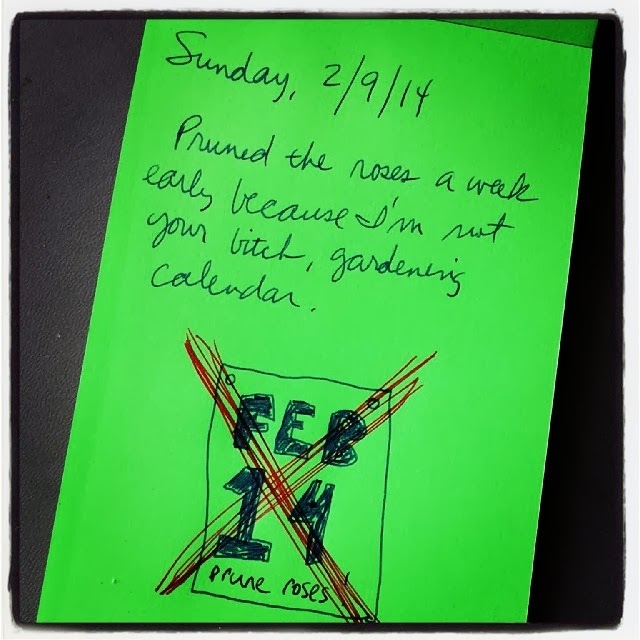 Sunday, 2/9/14
Pruned the roses a week
early because I'm not
your bitch, gardening
calendar.
FEB
14
prune roses